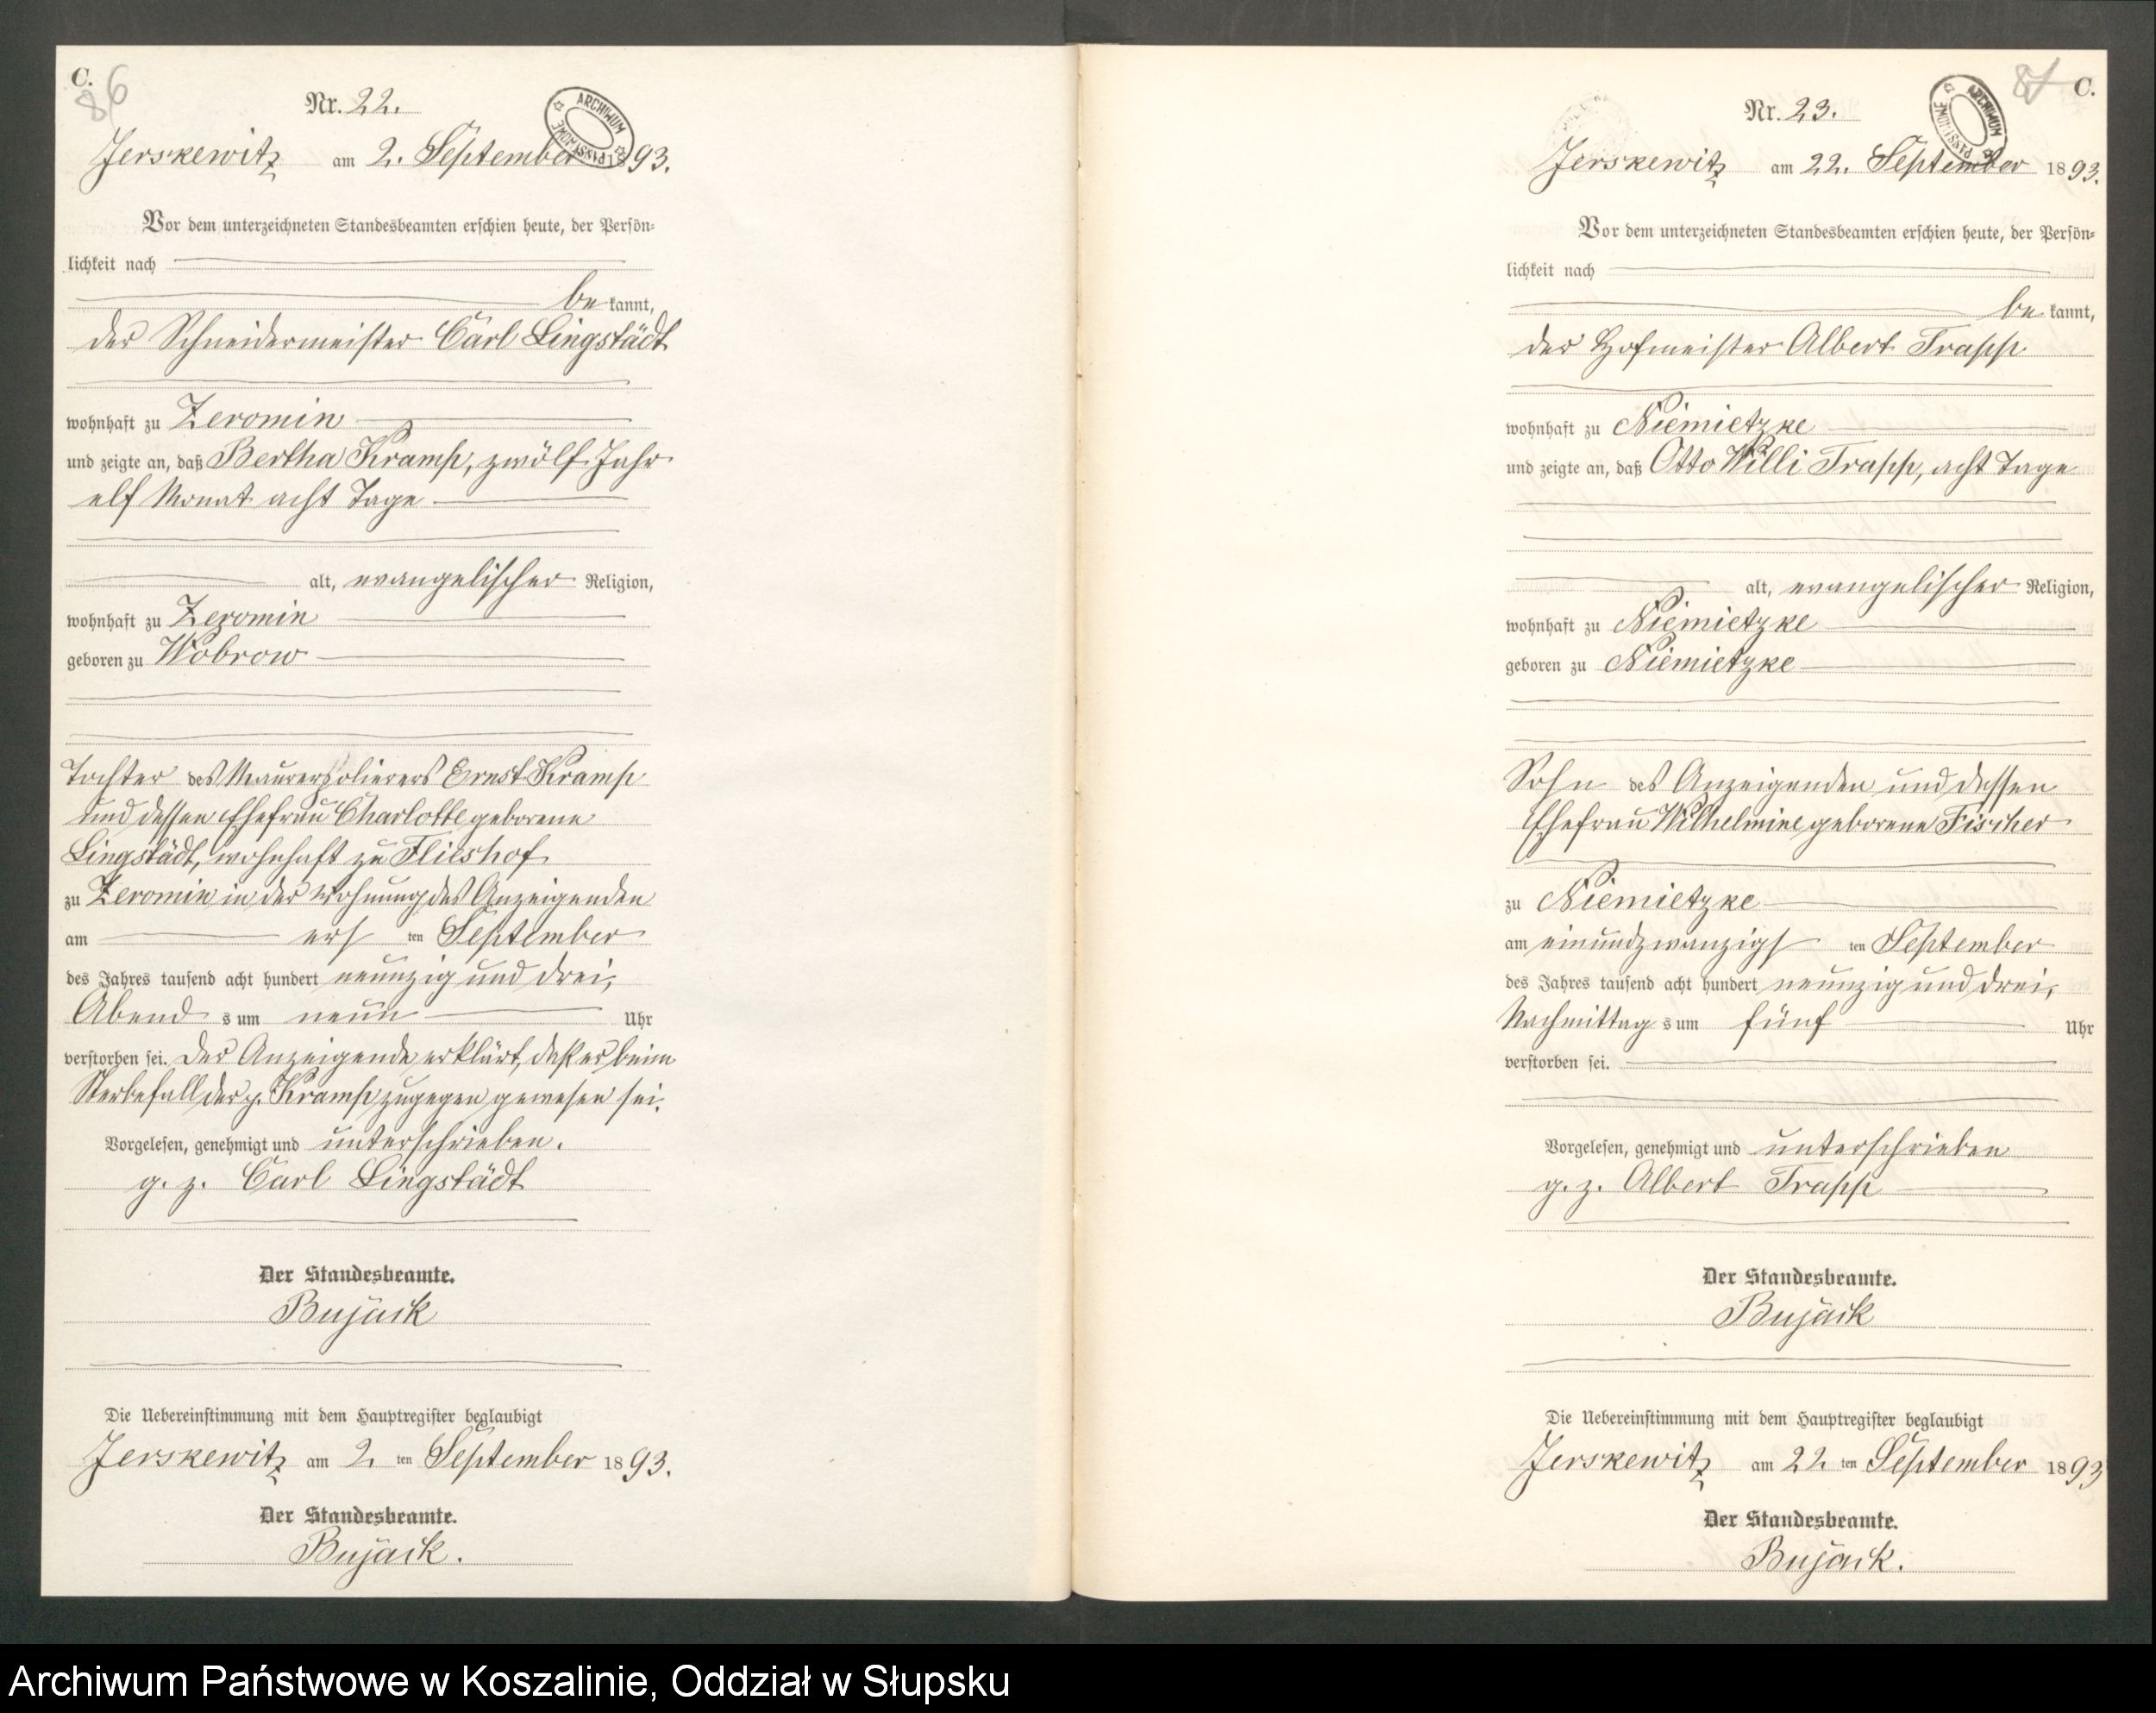 C.
86
Nr. 22.
ARCHIWUM PAŃSTWOWE
Jerskewitz am 2. September 1893.
Vor dem unterzeichneten Standesbeamten erschien heute, der Persön-
lichkeit nach
be kannt,
der Schneidermeister Carl Lingstädt
wohnhaft zu Zeromin
und zeigte an, daß Bertha Kramp, zwölf Jahr
elf Monat acht Tage
alt, evangelischer Religion,
wohnhaft zu Zeromin
geboren zu Wobrow
Tochter des Maurerpolierers Ernst Kramp
und dessen Ehefrau Charlotte geborene
Lingstädt, wohnhaft zu Flieshof
zu Zeromin in der Wohnung des Anzeigenden
am ers ten September
des Jahres tausend acht hundert neunzig und drei,
Abend s um neun Uhr
verstorben sei. Der Anzeigende erklärt, daß er beim
Sterbefall der p. Kramp zugegen gewesen sei.
Vorgelesen, genehmigt und unterschrieben.
g. z. Carl Lingstädt
Der Standesbeamte.
Bujack
Die Uebereinstimmung mit dem Hauptregister beglaubigt
Jerskewitz am 2 ten September 1893.
Der Standesbeamte.
Bujack.
87 C.
Nr. 23.
ARCHIWUM PAŃSTWOWE
Jerskewitz am 22. September 1893.
Vor dem unterzeichneten Standesbeamten erschien heute, der Persön-
lichkeit nach
be kannt,
der Hofmeister Albert Trapp
wohnhaft zu Niemietzke
und zeigte an, daß Otto Willi Trapp, acht Tage
alt, evangelischer Religion,
wohnhaft zu Niemietzke
geboren zu Niemietzke
Sohn des Anzeigenden und dessen
Ehefrau Wilhelmine geborene Fischer
zu Niemietzke
am einundzwanzigs ten September
des Jahres tausend acht hundert neunzig und drei,
Nachmittag s um fünf Uhr
verstorben sei.
Vorgelesen, genehmigt und unterschrieben
g. z. Albert Trapp
Der Standesbeamte.
Bujack
Die Uebereinstimmung mit dem Hauptregister beglaubigt
Jerskewitz am 22 ten September 1893
Der Standesbeamte.
Bujack.
Archiwum Państwowe w Koszalinie, Oddział w Słupsku